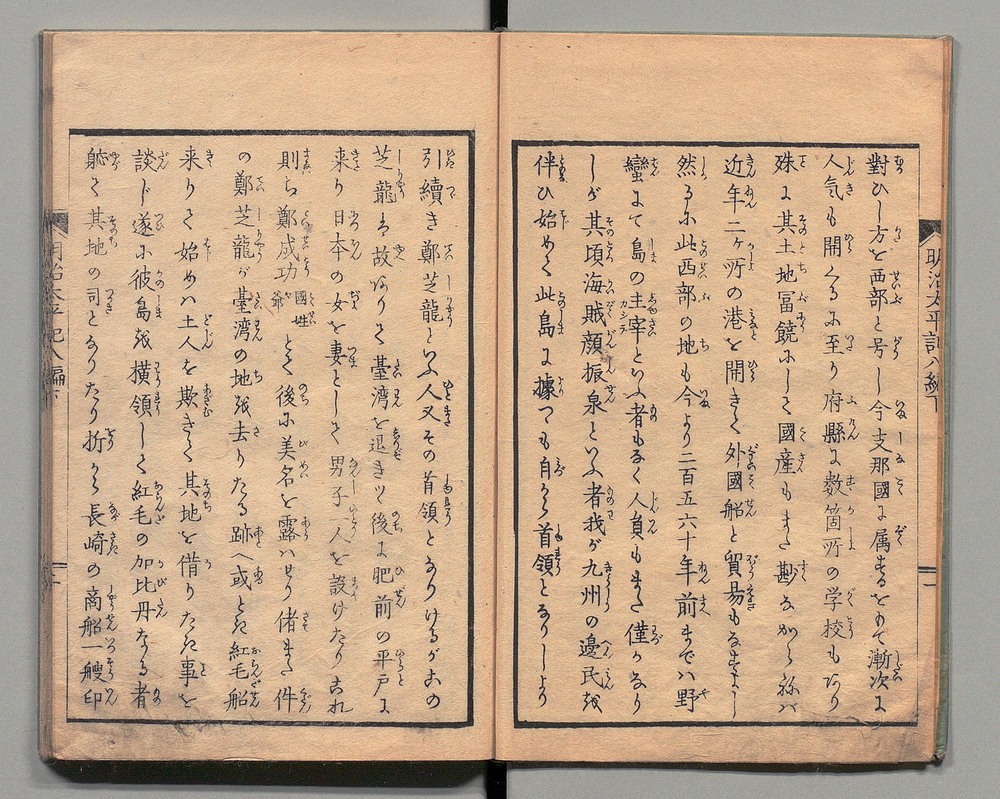 對ひし方を西部と号し今支那國に属するをもて漸次に
人気も開くるに至り府縣に数箇所の学校もあり
殊に其土地冨饒にして國産もまた尠なからねバ
近年二ヶ所の港を開きて外國船と貿易もなすよし
然るに此西部の地も今より二百五六十年前までハ野
蠻にて島の主宰といふ者もなく人員もまた僅かなり
しが其頃海賊顔振泉といふ者我が九州の邊民を
伴ひ始めて此島に據つも自から首領となりしより
引續き鄭芝龍といふ人又その首領となりけるがこの
芝龍ハ故ありて臺湾を退きツ後に肥前の平戸に
来り日本の女を妻として男子一人を設けたりこれ
則ち鄭成功國姓爺とて後に美名を露ハせり偖また件
の鄭芝龍が臺湾の地を去りたる跡へ或とき紅毛船
来りて始めハ土人を欺きて其地を借りたき事を
談じ遂に彼島を横領して紅毛の加比丹なる者
躰て其地の司となりたり折から長崎の商船一艘印
明治太平記八編下
明治太平記八編下